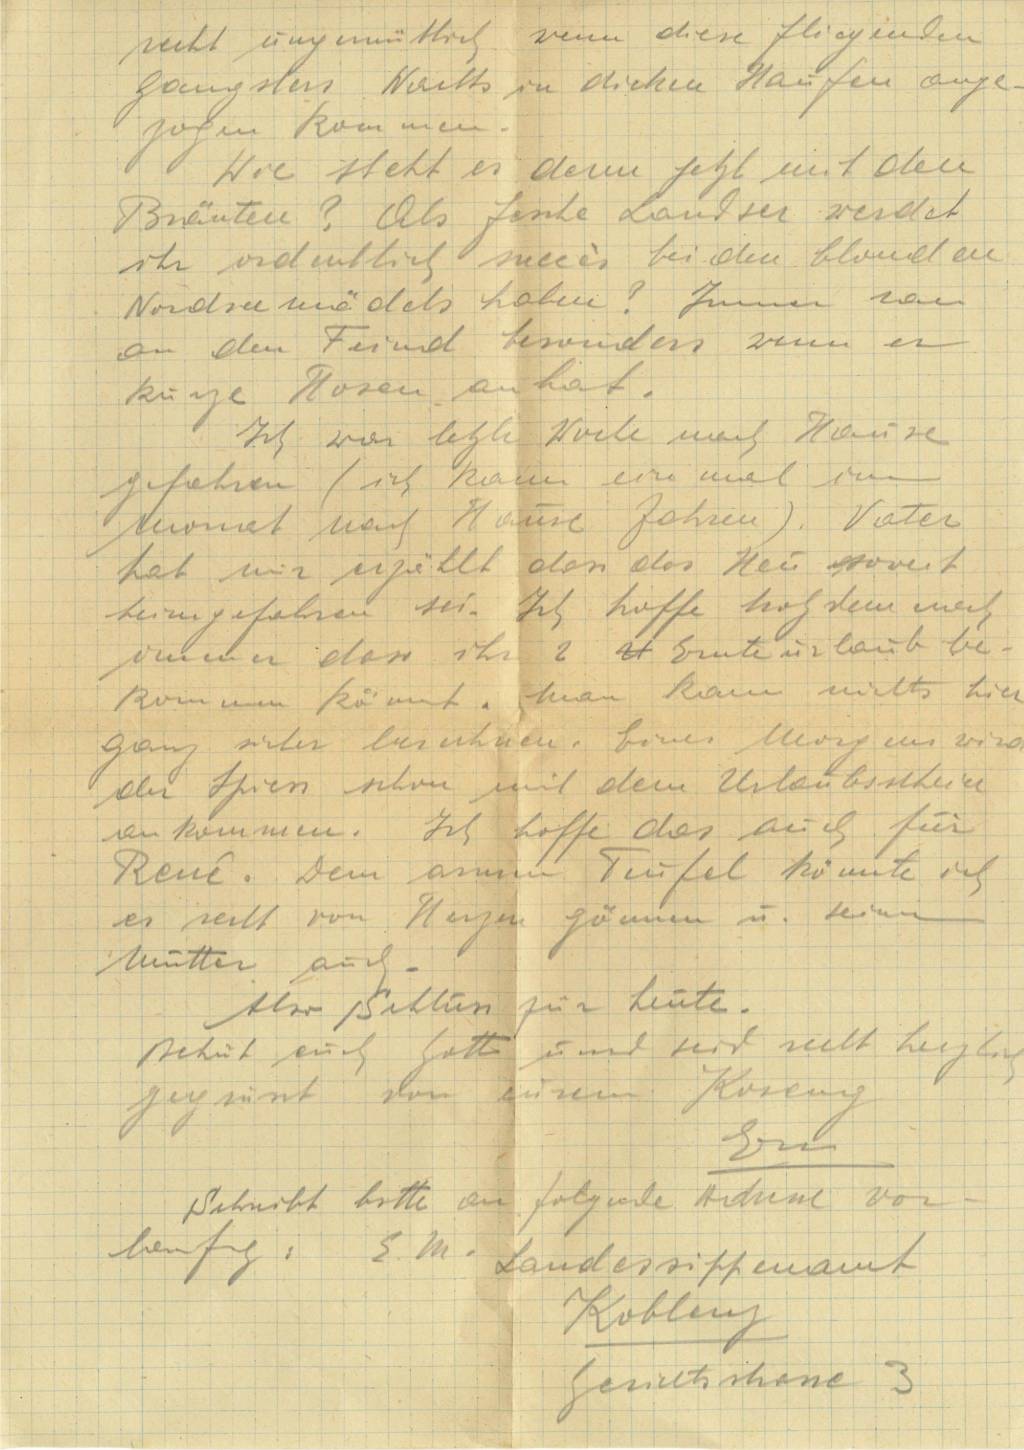 recht ungemütlich wenn diese fliegenden
Gangsters Nachts in dicken Haufen ange-
zogen kommen.
Wie steht es denn jetzt mit den
Bräuten? Als fesche Landser werdet
ihr ordentlich succès bei den blonden
Nordseemädels haben? Immer ran
an den Feind besonders wenn er
kurze Hosen anhat.
Ich war letzte Woche nach Hause
gefahren (ich kann einmal im
Monat nach Hause fahren). Vater
hat mir erzählt dass das Heu soweit
heimgefahren sei. Ich hoffe trotzdem noch
immer dass ihr 2 Ernteurlaub be-
kommen könnt. Man kann nichts hier
ganz sicher berechnen. Eines Morgens wird
der Spiess schon mit dem Urlaubsschein
ankommen. Ich hoffe das auch für
René. Dem armen Teufel könnte ich
es recht von Herzen gönnen u. seiner
Mutter auch.
Also Schluss für heute.
Behüt euch Gott und seid recht herzlich
gegrüsst von eurem Koseng
Ern
Schreibt bitte an folgende Adresse vor-
läufig: E. M. Landessippenamt
Koblenz
Gerichtsstrasse 3